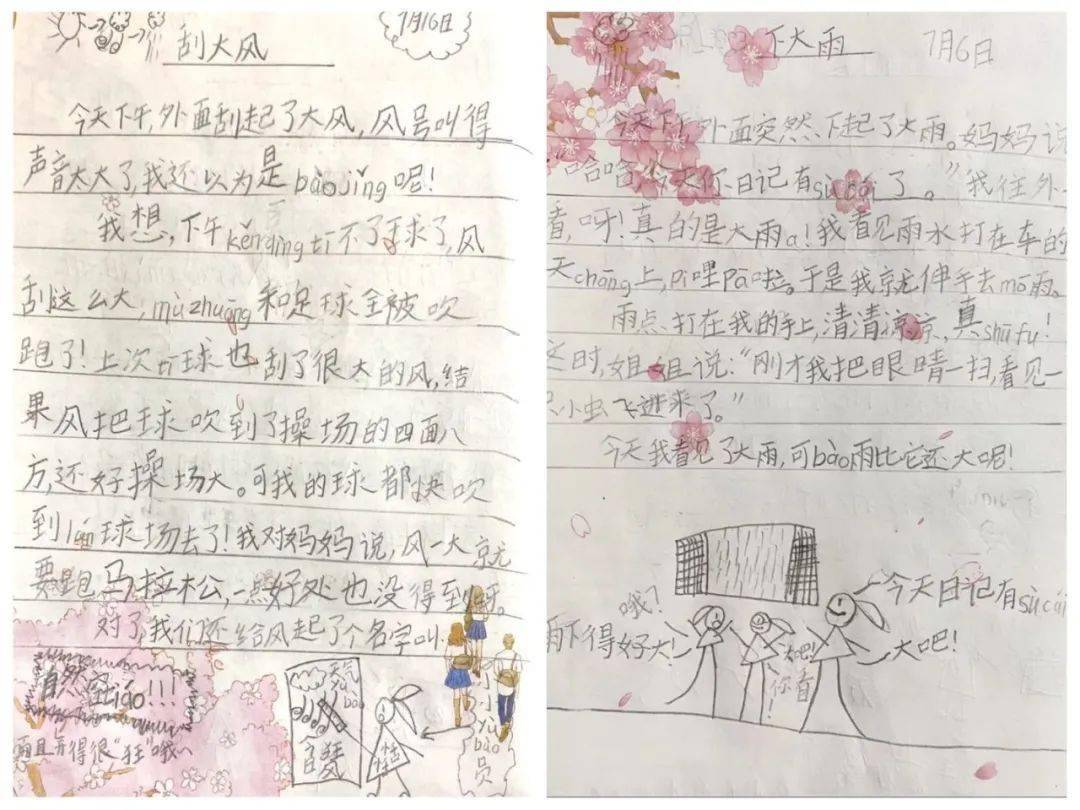 刮大风
7月16日
今天下午,外面刮起了大风,风号叫得
声音太大了,我还以为是bàojǐng呢!
我想,下午kěndìng tī不了球了,风
刮这么大,mùzhuāng和足球全被吹
跑了!上次tī球也刮了很大的风,结
果风把球吹到了操场的四面八
方,还好操场大。可我的球都快吹
到lán球场去了!我对妈妈说,风一大就
要跑马拉松,一点好处也没得到呀。
对了,我们还给风起了个名字叫
自然
而且弄得很“狂”哦
天气
小yùbào员
下大雨
7月6日
今天下午外面突然下起了大雨。妈妈说
“哈哈,今天你日记有sùcái了。”我往外一
看,呀!真的是大雨a!我看见雨水打在车的
天chāng上,pī哩pā啦。于是我就伸手去mō雨。
雨点打在我的手上,清清凉凉,真shūfu!
这时,姐姐说:“刚才我把眼睛一扫,看见一
只小虫飞进来了。”
今天我看见了大雨,可bào雨比它还大呢!
哦?
雨下得好大!
大吧!
你看!
今天日记有sùcái
大吧!